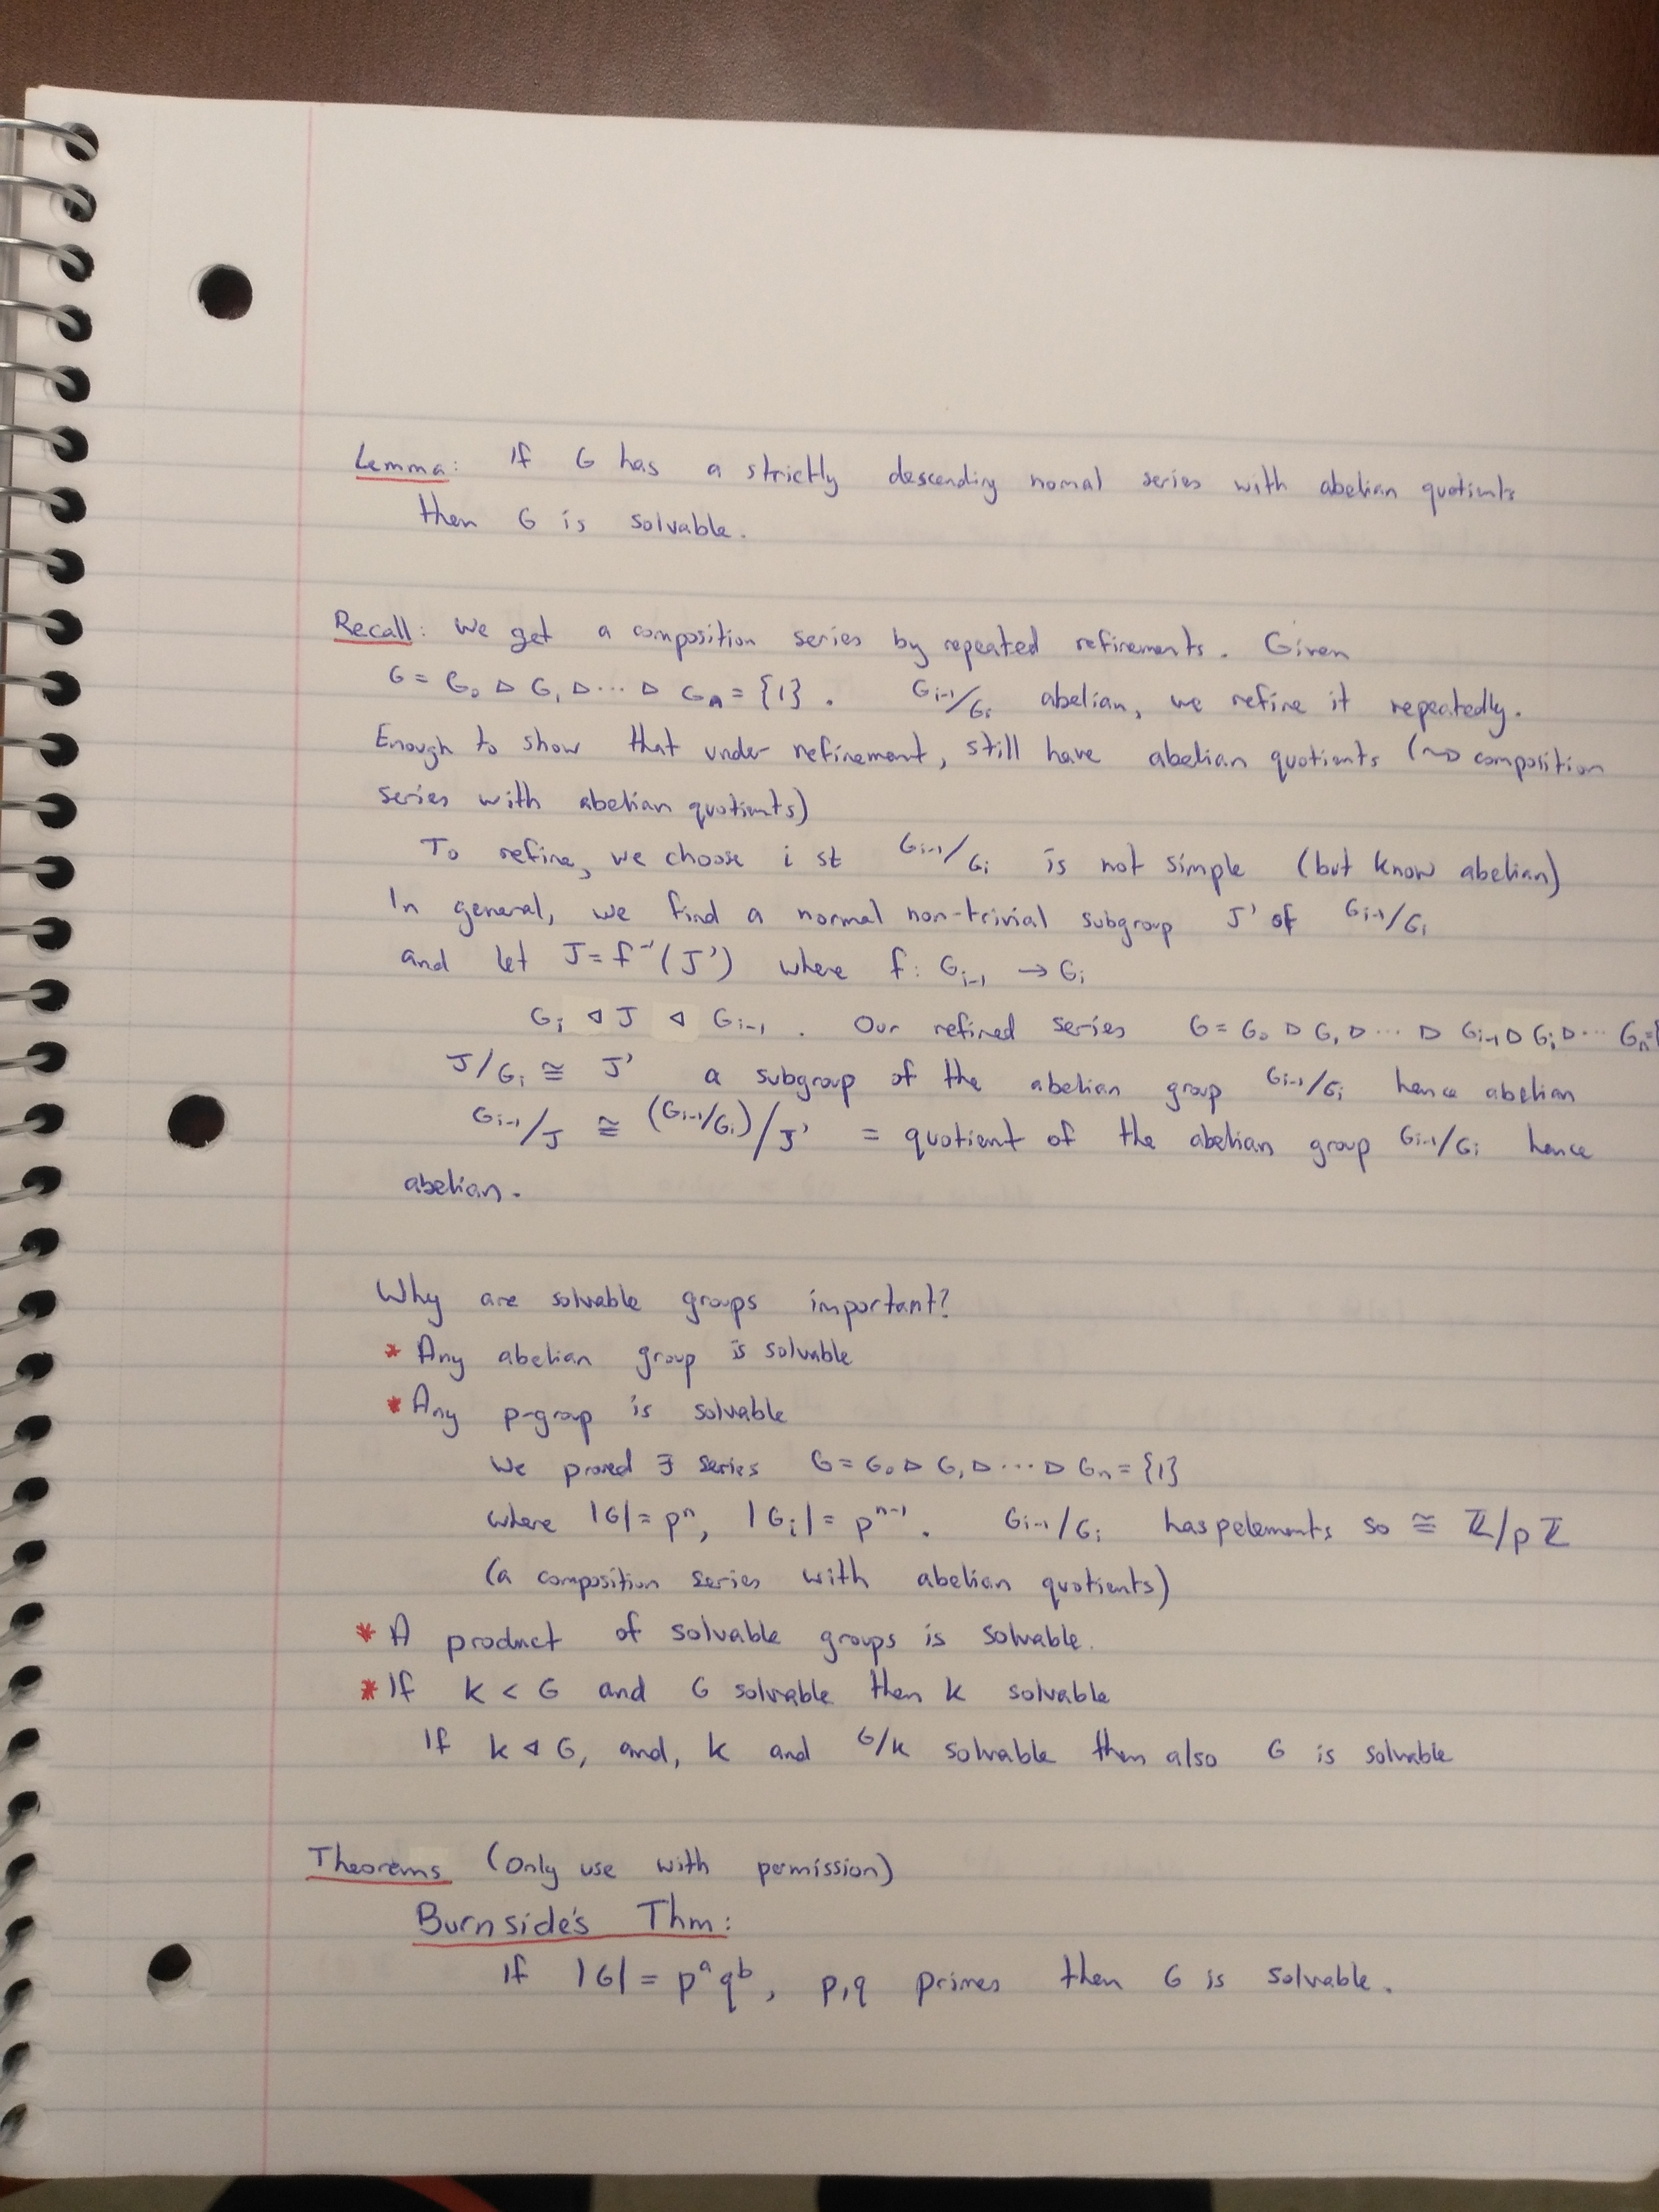 Lemma: If G has a strictly descending nomal series with abelian quotients
then G is solvable.
Recall: We get a composition series by repeated refinements. Given
G = G₀ ▷ G₁ ▷ ⋯ ▷ Gₙ = {1}. Gᵢ₋₁/Gᵢ abelian, we refine it repeatedly.
Enough to show that under refinement, still have abelian quotients (⇝ composition
series with abelian quotients)
To refine, we choose i st Gᵢ₋₁/Gᵢ is not simple (but know abelian)
In general, we find a normal non-trivial subgroup J' of Gᵢ₋₁/Gᵢ
and let J = f⁻¹(J') where f: Gᵢ₋₁ → Gᵢ
Gᵢ ◁ J ◁ Gᵢ₋₁. Our refined series G = G₀ ▷ G₁ ▷ ⋯ ▷ Gᵢ₋₁ ▷ Gᵢ ▷ ⋯ Gₙ = {
J/Gᵢ ≅ J' a subgroup of the abelian group Gᵢ₋₁/Gᵢ hence abelian
Gᵢ₋₁/J ≅ (Gᵢ₋₁/Gᵢ)/J' = quotient of the abelian group Gᵢ₋₁/Gᵢ hence
abelian.
Why are solvable groups important?
* Any abelian group is solvable
* Any p-group is solvable
We proved ∃ series G = G₀ ▷ G₁ ▷ ⋯ ▷ Gₙ = {1}
where |G| = pⁿ, |Gᵢ| = pⁿ⁻¹. Gᵢ₋₁/Gᵢ has p elements so ≅ ℤ/pℤ
(a composition series with abelian quotients)
* A product of solvable groups is solvable.
* If K < G and G solvable then K solvable
If K ◁ G, and, K and G/K solvable then also G is solvable
Theorems (Only use with permission)
Burnside's Thm:
If |G| = pᵃqᵇ, p,q primes then G is solvable.